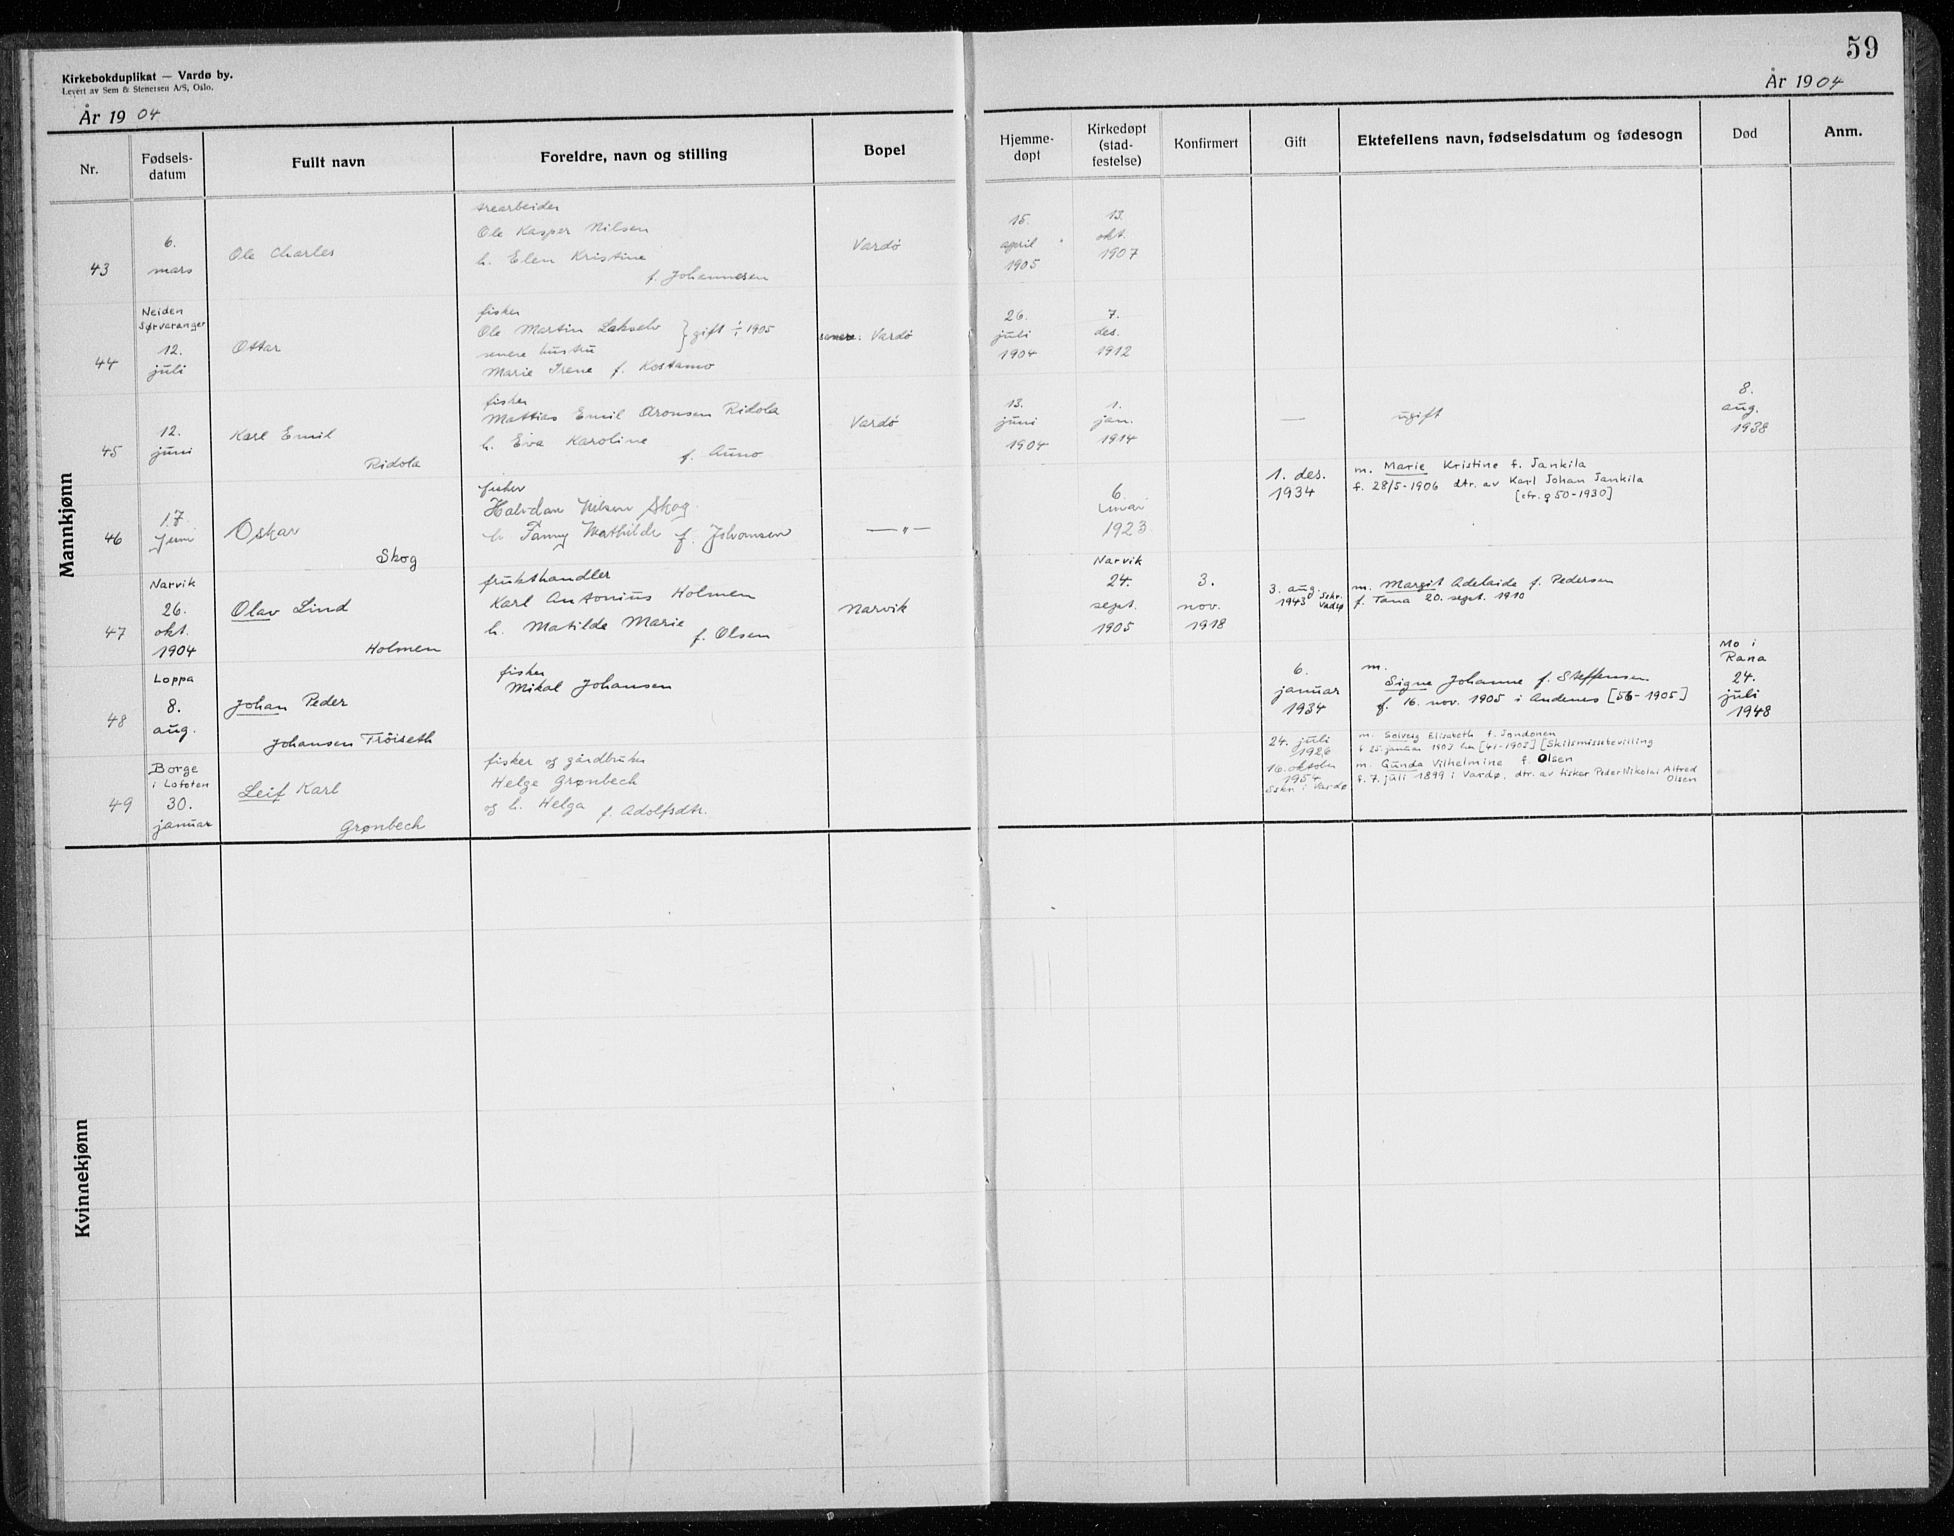 59
Kirkebokduplikat — Vardø by.
Levert av Sem & Stenersen A/S, Oslo.
År 1904
År 1904
Nr.
Fødsels-
datum
Fullt navn
Foreldre, navn og stilling
Bopel
Hjemme-
døpt
Kirkedøpt
(stad-
festelse)
Konfirmert
Gift
Ektefellens navn, fødselsdatum og fødesogn
Død
Anm.
Mannkjønn
43
6.
mars
Ole Charles
trearbeider
Ole Kasper Nilsen
h. Elen Kristine
f. Johannesen
Vardø
15.
april
1905
13.
okt.
1907
44
Neiden
Sørvaranger
12.
juli
Ottar
fisker
Ole Martin Lakselv } gift 1/1 1905
senere hustru
Marie Irene f. Kostamo
senere: Vardø
26.
juli
1904
7.
des.
1912
45
12.
juni
Karl Emil
Ridola
fisker
Mattias Emil Aronsen Ridola
h. Eva Karoline
f. Auno
Vardø
13.
juni
1904
1.
jan.
1914
—
ugift
8.
aug.
1938
46
17
Juni
Oskar
Skog
fisker
Halvdan Nilsen Skog
h. Fanny Mathilde f. Johansen
— " —
6.
1923
1. des.
1934
m. Marie Kristine f. Jankila
f. 28/5-1906 dtr. av Karl Johan Jankila
[cfr. g 50-1930]
47
Narvik
26.
okt.
1904
Olav Lind
Holmen
frukthandler
Karl Antonius Holmen
h. Matilde Marie
f. Olsen
Narvik
Narvik
24.
sept.
1905
3.
nov.
1918
3. aug.
1943 Sskr. Vadsø
m. Margit Adelaide f. Pedersen
f. Tana 20. sept. 1910
48
Loppa
8.
aug.
Johan Peder
Johansen Trøiseth
fisker
Mikal Johansen
6.
januar
1934
m.
Signe Johanne f. Steffensen
f. 16. nov. 1905 i Andenes [56-1905]
Mo i
Rana
24.
juli
1948
49
Borge
i Lofoten
30.
januar
Leif Karl
Grønbech
fisker og gårdbruker
Helge Grønbech
og h. Helga f. Adolfsdtr.
24. juli
1926
16. oktober
1954
Sskr. i Vardø
m. Solveig Elisabeth f. Jondonen
f. 25. januar 1903 her [41-1903] [Skilsmissebevilling
m. Gunda Vilhelmine f. Olsen
f. 7. juli 1899 i Vardø, dtr. av fisker Peder Nikolai Alfred
Olsen
Kvinnekjønn